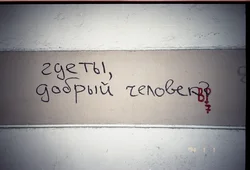 где ты,
добрый человек?
В
7